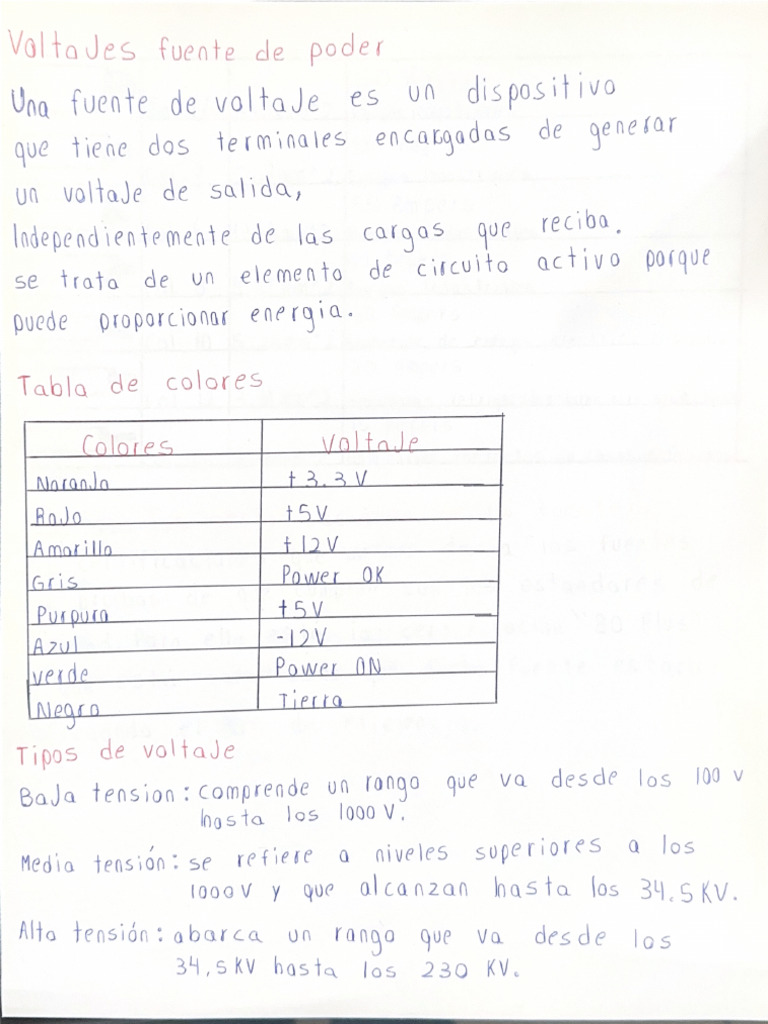 Voltajes fuente de poder
Una fuente de voltaje es un dispositivo
que tiene dos terminales encargadas de generar
un voltaje de salida,
Independientemente de las cargas que reciba.
se trata de un elemento de circuito activo porque
puede proporcionar energia.
Tabla de colores
Colores Voltaje
Naranja +3.3V
Rojo +5V
Amarillo +12V
Gris Power OK
Purpura +5V
Azul -12V
verde Power ON
Negro Tierra
Tipos de voltaje
Baja tension: comprende un rango que va desde los 100 v
hasta los 1000 V.
Media tensión: se refiere a niveles superiores a los
1000 V y que alcanzan hasta los 34.5 KV.
Alta tensión: abarca un rango que va desde los
34,5 KV hasta los 230 KV.